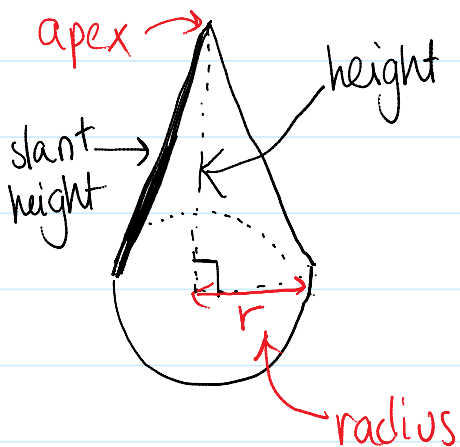 apex
height
slant
height
r
radius